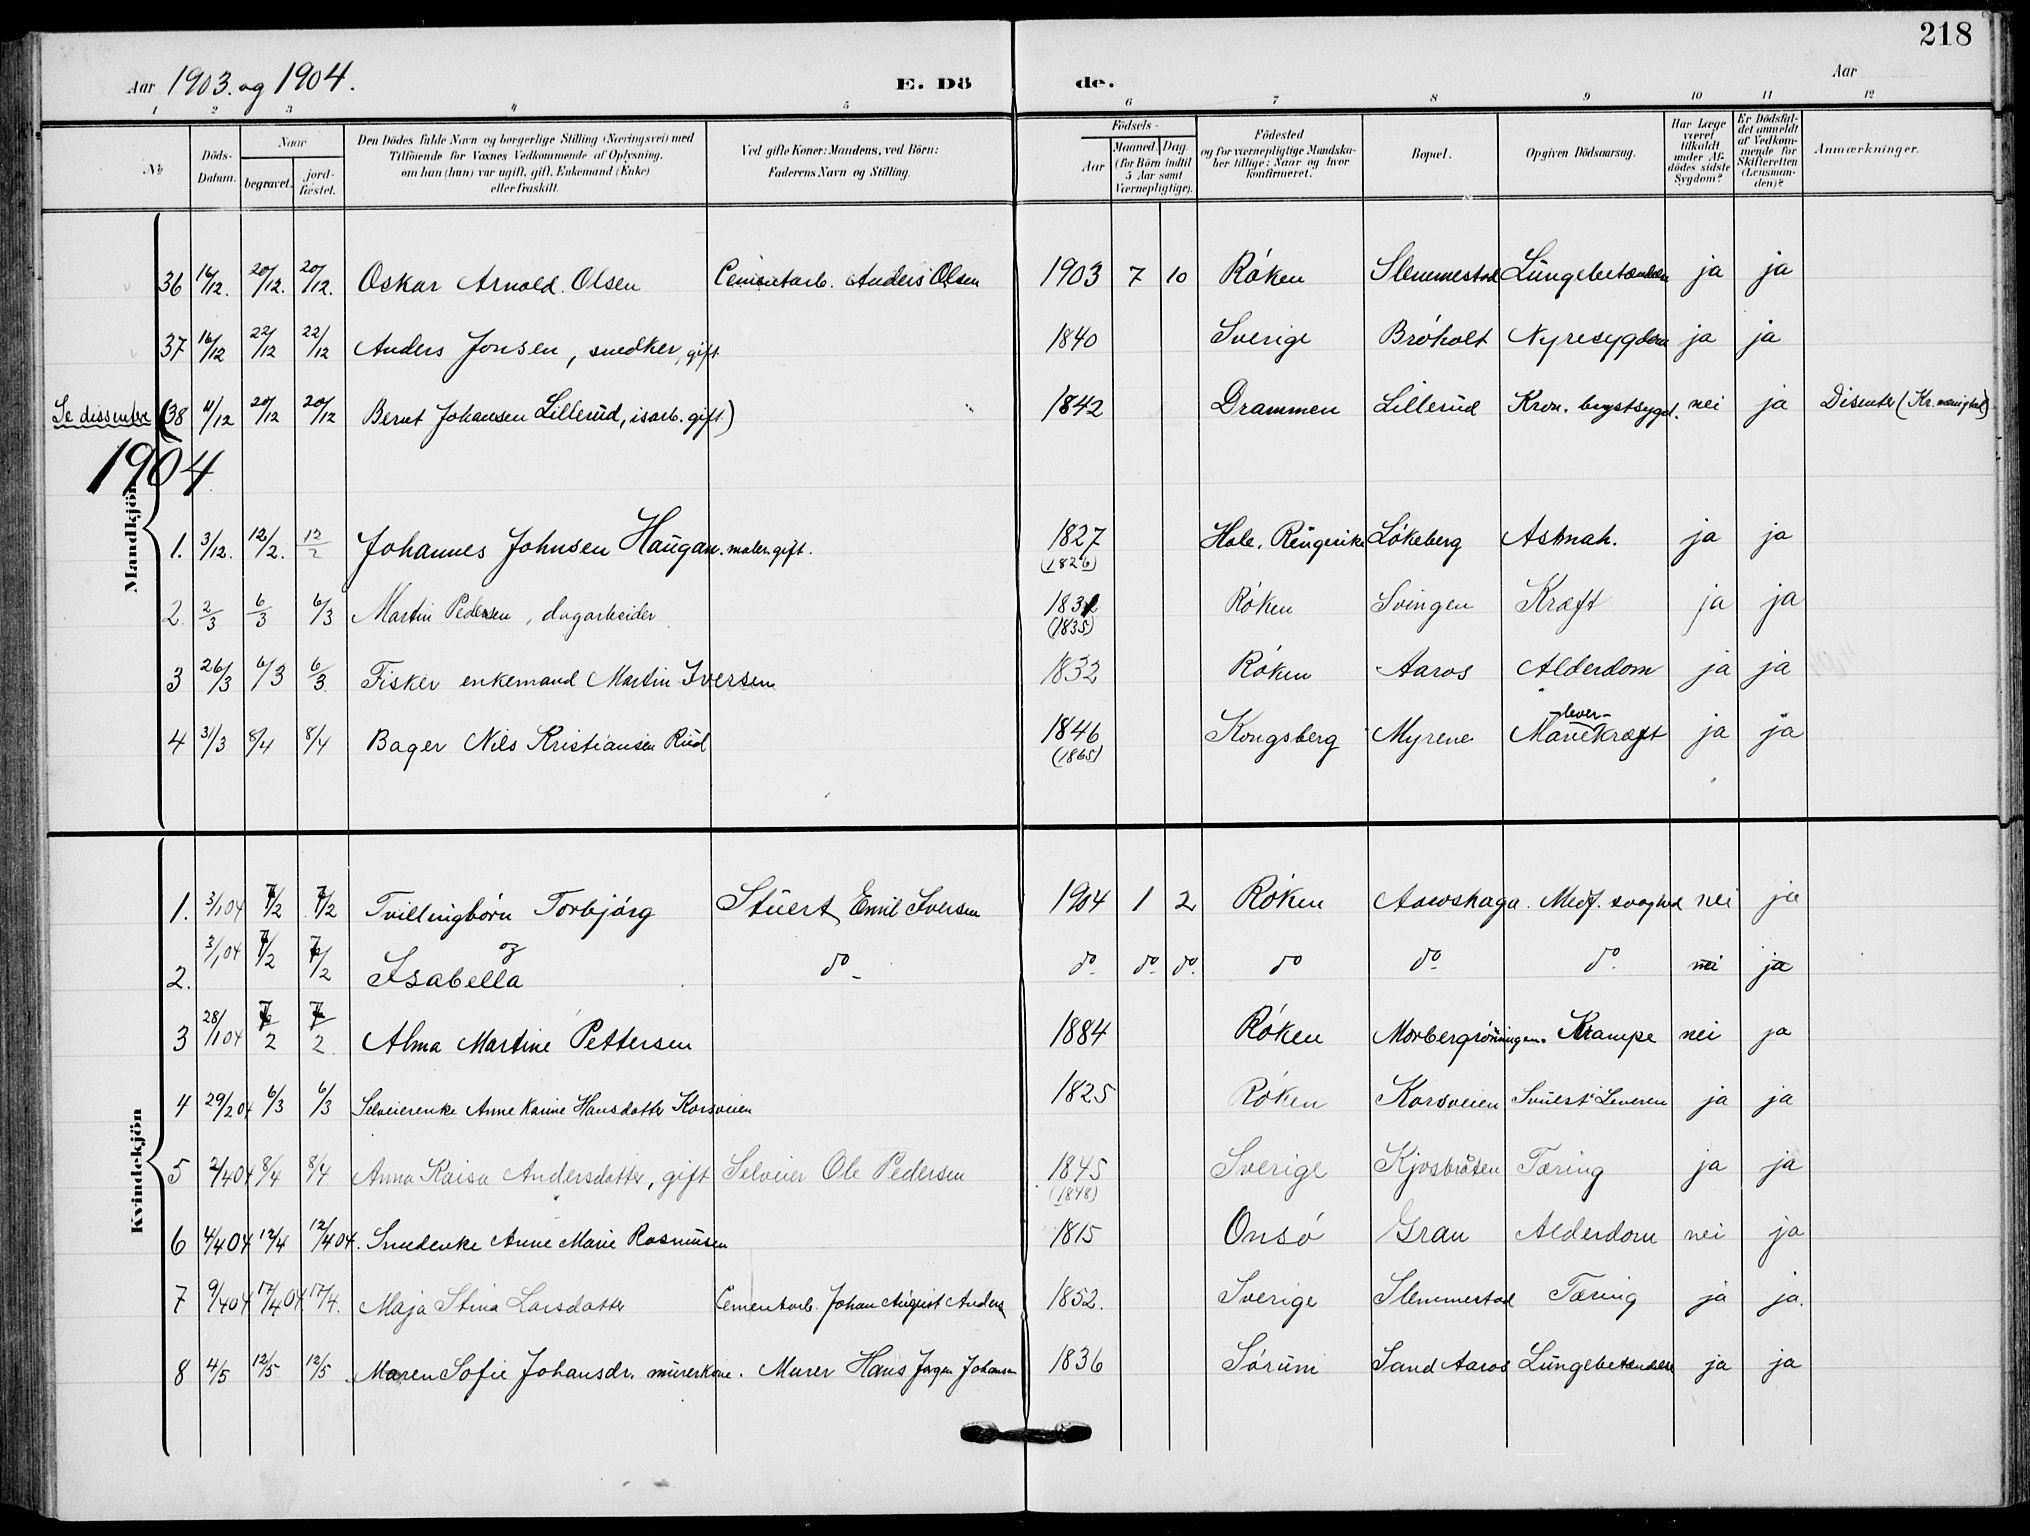 218
Aar 1903. og 1904. E. Dö de. Aar
1 2 3 4 5 6 7 8 9 10 11 12
No.
Döds-Datum.
Naar
begravet.
jord-fæstet.
Den Dödes fulde Navn og borgerlige Stilling (Næringsvei) med
Tilföiende for Voxnes Vedkommende af Oplysning,
om han (hun) var ugift, gift, Enkemand (Enke)
eller fraskilt.
Ved gifte Koner: Mandens, ved Börn:
Faderens Navn og Stilling.
Födsels-
Aar
Maaned. Dag.
(for Börn indtil
5 Aar samt
Værnepligtige).
Födested
og for værnepligtige Mandska-
ber tillige: Naar og hvor
konfirmeret.
Bopæl.
Opgiven Dödsaarsag.
Har Læge
været
tilkaldt
under Af-
dödes sidste
Sygdom?
Er Dödsfal-
det anmeldt
af Vedkom-
mende for
Skifteretten
(Lensman-
den)?
Anmærkninger.
Mandkjön
36 16/12. 20/12. 20/12. Oskar Arnold Olsen Cementarb. Anders Olsen 1903 7 10 Röken Slemmestad Lungebetændelse ja ja
37 16/12 22/12 22/12 Anders Jonsen, snedker, gift 1840 Sverige Bröholt Nyresygdom ja ja
Se dissentere (38 11/12 20/12 20/12 Bernt Johansen Lillerud, isarb. gift) 1842 Drammen Lillerud Kron. brystsygd. nei ja Disenter (Kr. menighed)
1904
1. 3/12. 12/2. 12/2 Johannes Johnsen Haugan. maler. gift. 1827 Hole, Ringerike Lökeberg Astmah. ja ja
(1826)
2. 2/3 6/3 6/3 Martin Pedersen, dagarbeider 1832 Röken Svingen Kræft ja ja
(1835)
3 26/3 6/3 6/3 Fisker enkemand Martin Iversen 1832 Röken Aaros Alderdom ja ja
4 31/3 8/4 8/4 Bager Nils Kristiansen Rud 1846 Kongsberg Myrene Mavekræft ja ja
-lever-
(1865)
Kvindekjön
1. 3/1 04 7/2 7/2 Tvillingbörn Torbjörg Stuert Emil Iversen 1904 1 2 Röken Aaroshaga. Medf. svaghed nei ja
og
2. 3/1 04 7/2 7/2 Isabella do do do do do do do nei ja
3 28/1 04 7/2 7/2 Alma Martine Pettersen 1884 Röken Morbergröningen. Krampe nei ja
4 29/2 04 6/3 6/3 Selveierenke Anne Karine Hansdatter Korsveien 1825 Röken Korsveien Svulst i Leveren ja ja
5 2/4 04 8/4 8/4 Anna Kaisa Andersdatter, gift Selveier Ole Pedersen 1845 Sverige Kjosbråten Tæring ja ja
(1848)
6 4/4 04 12/4 12/4 04. Smedenke Anne Marie Rasmussen 1815 Onsö Gran Alderdom nei ja
7 9/4 04 17/4 04 17/4. Maja Stina Larsdatter Cementarb. Johan August Anders 1852. Sverige Slemmestad Tæring ja ja.
8 4/5 12/5 12/5 Maren Sofie Johansdr. murerkone. Murer Hans Jørgen Johansen 1836 Sörum Sand Aaros Lungebetændelse ja ja